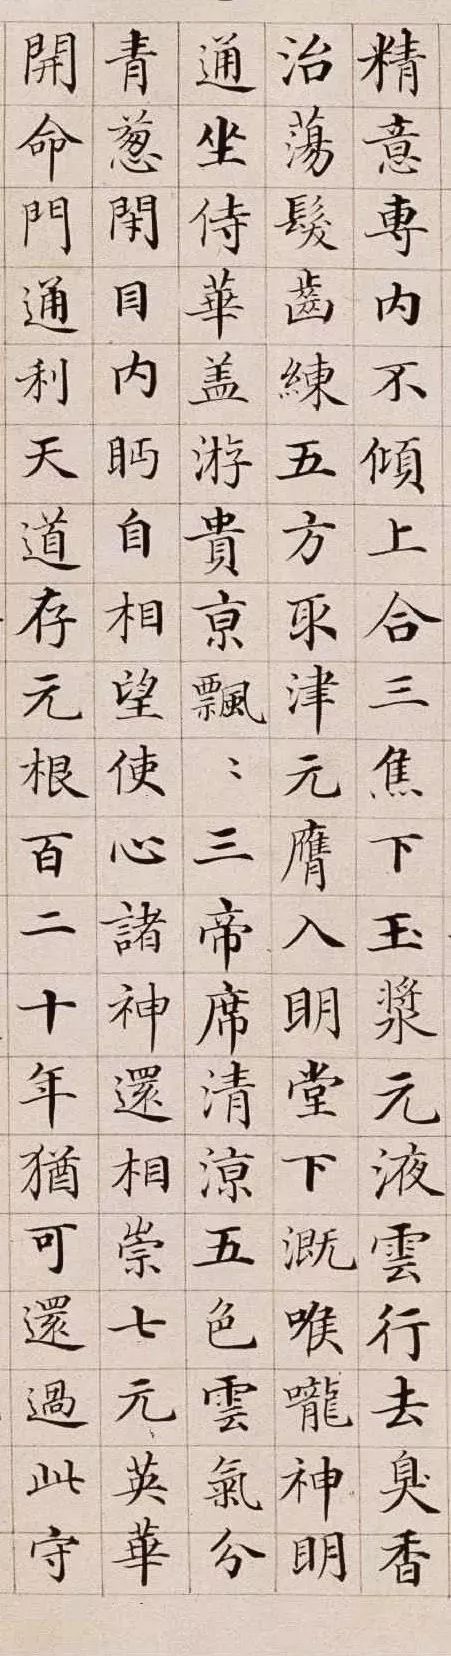 精意專內不傾上合三焦下玉漿元液雲行去臭香
治蕩髮齒練五方取津元膺入明堂下溉喉嚨神明
通坐侍華盖游貴京飄〻三帝席清涼五色雲氣分
青葱閉目內眄自相望使心諸神還相崇七元英華
開命門通利天道存元根百二十年猶可還過此守